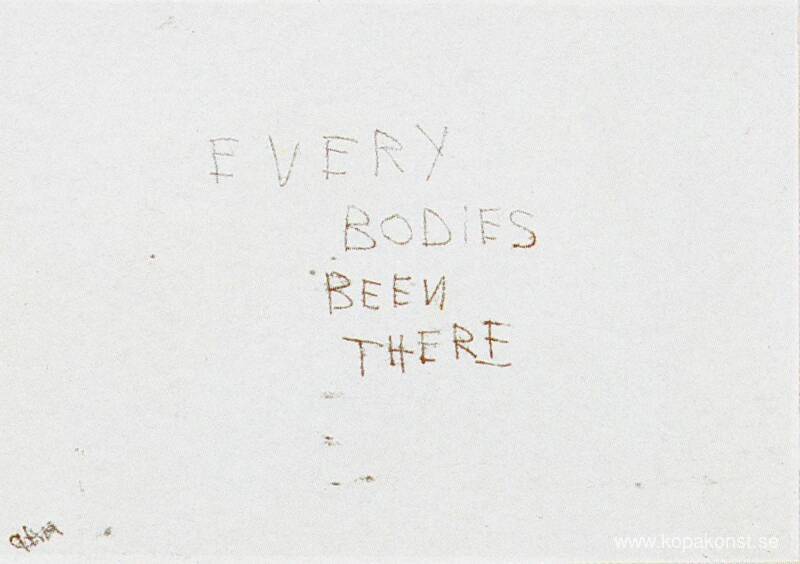 EVERY
BODiES
BEEN
THERE
www.kopakonst.se